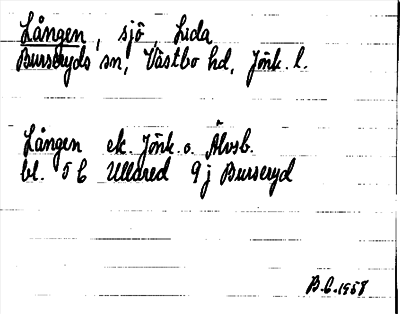 Lången, sjö, Lida
Burseryds sn, Västbo hd, Jönk. l.
Lången ek. Jönk. o. Älvsb.
bl. 5 C Ullared 9 j Burseryd
B.C. 1958